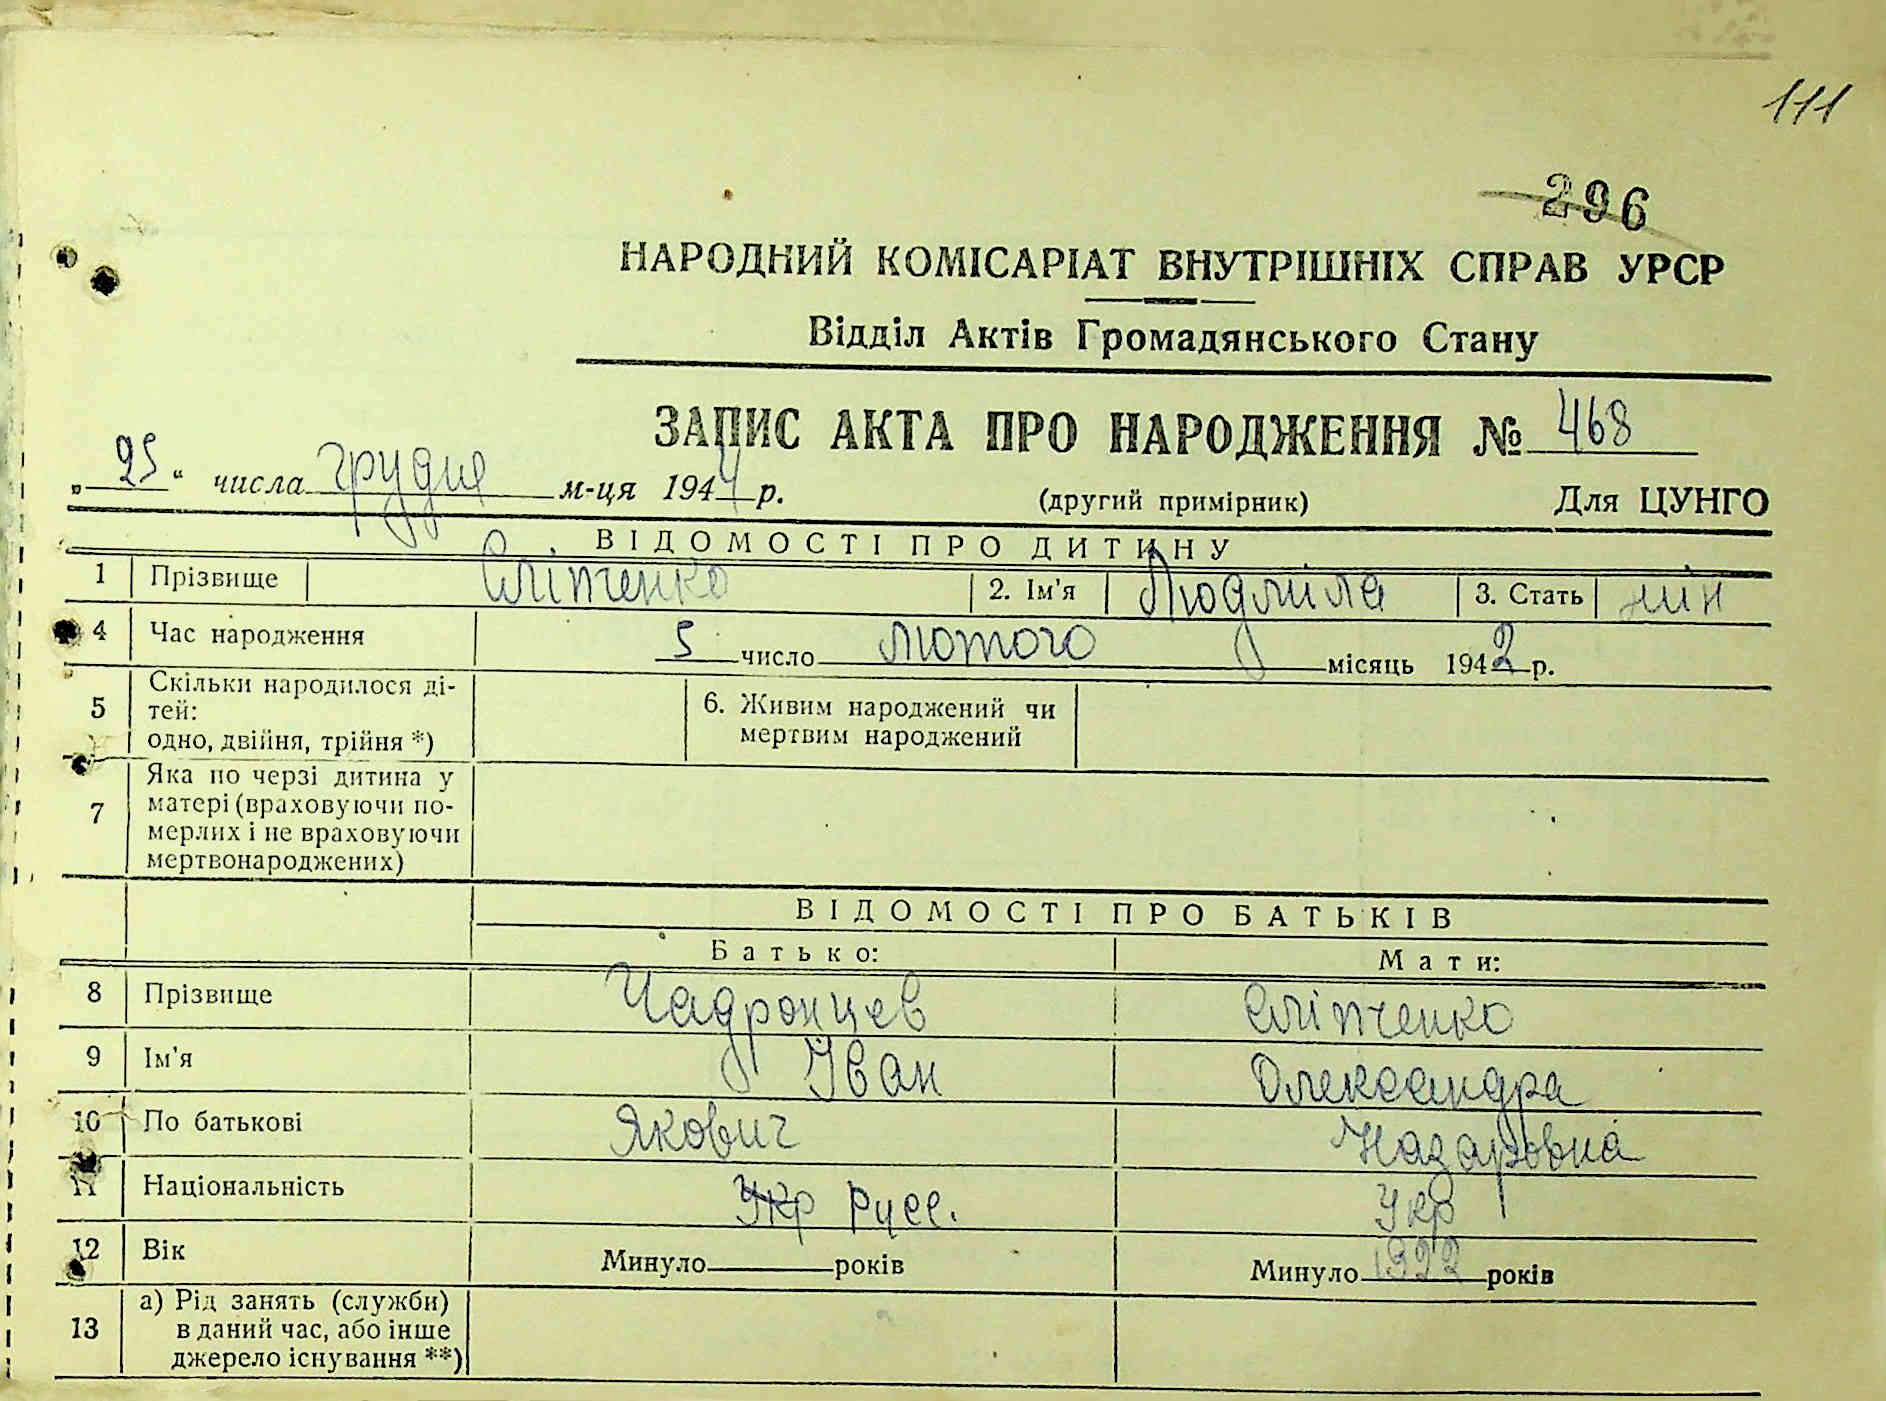 111
296
НАРОДНИЙ КОМІСАРІАТ ВНУТРІШНІХ СПРАВ УРСР
Відділ Актів Громадянського Стану
ЗАПИС АКТА ПРО НАРОДЖЕННЯ № 468
„25“ числа грудня м-ця 1944 р. (другий примірник) Для ЦУНГО
ВІДОМОСТІ ПРО ДИТИНУ
1 Прізвище Сліпченко 2. Ім'я Людміла 3. Стать
4 Час народження 5 число лютого місяць 1942 р.
5 Скільки народилося ді-
тей:
одно, двійня, трійня *)
6. Живим народжений чи
мертвим народжений
7 Яка по черзі дитина у
матері (враховуючи по-
мерлих і не враховуючи
мертвонароджених)
ВІДОМОСТІ ПРО БАТЬКІВ
Батько: Мати:
8 Прізвище Чадронцев Сліпченко
9 Ім'я Іван Олександра
10 По батькові Якович Назаровна
11 Національність Укр Русс. Укр
12 Вік Минуло року Минуло 1922 років
13 а) Рід занять (служби)
в даний час, або інше
джерело існування **)